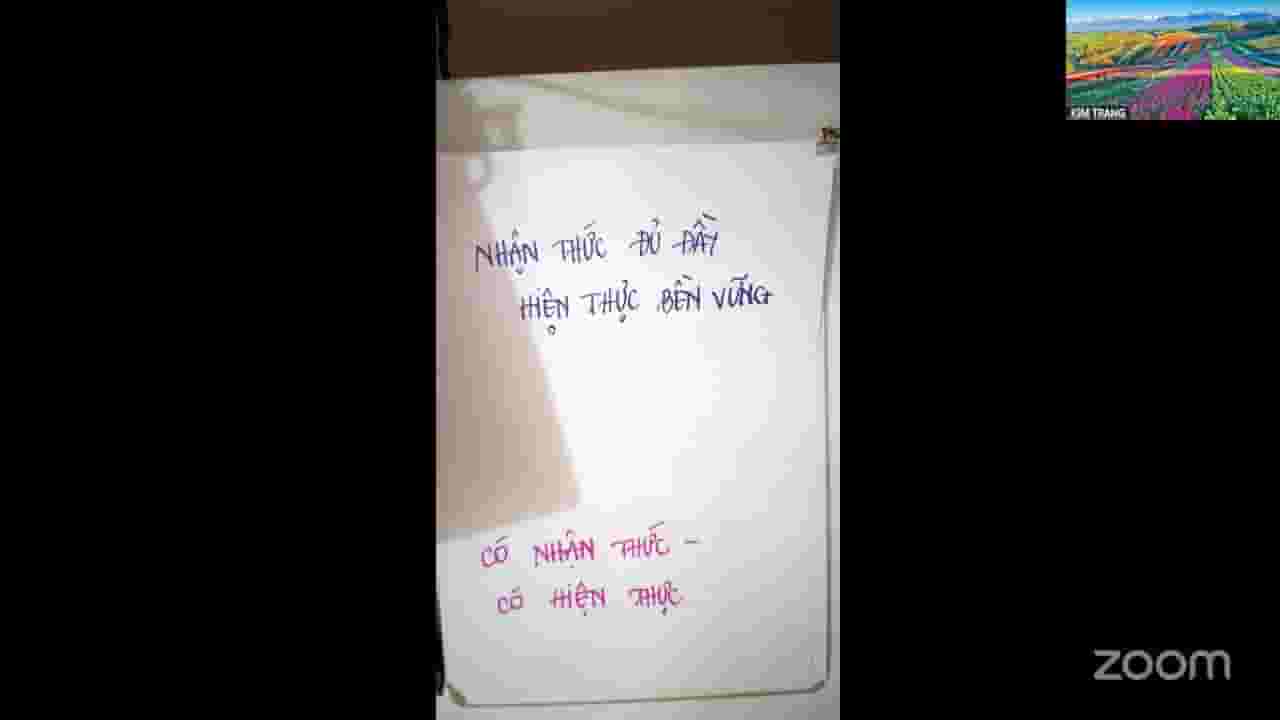 KIM TRANG
NHẬN THỨC ĐỦ ĐẦY
HIỆN THỰC BỀN VỮNG
CÓ NHẬN THỨC –
CÓ HIỆN THỰC
zoom